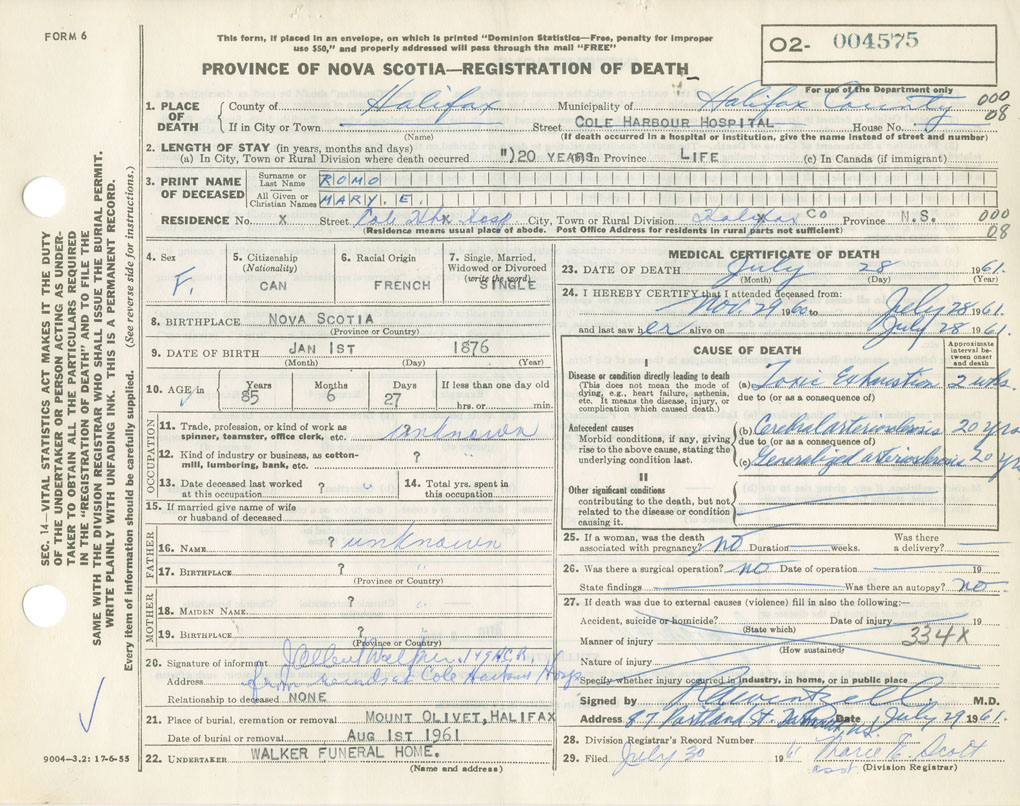 FORM 6
This form, if placed in an envelope, on which is printed "Dominion Statistics—Free, penalty for improper
use $50," and properly addressed will pass through the mail "FREE"
PROVINCE OF NOVA SCOTIA—REGISTRATION OF DEATH
O2- 004575
For use of the Department only
1. PLACE OF DEATH County of Halifax Municipality of Halifax County 000
If in City or Town Street COLE HARBOUR HOSPITAL House No. 08
(Name) (If death occurred in a hospital or institution, give the name instead of street and number)
2. LENGTH OF STAY (in years, months and days)
(a) In City, Town or Rural Division where death occurred 20 YEARS In Province LIFE (c) In Canada (if immigrant)
3. PRINT NAME OF DECEASED Surname or Last Name ROMO
All Given or Christian Names MARY. E.
RESIDENCE No. X Street Cole Hbr Hosp City, Town or Rural Division Halifax Co Province N.S. 000
(Residence means usual place of abode. Post Office Address for residents in rural parts not sufficient) 08
4. Sex F.
5. Citizenship (Nationality) CAN
6. Racial Origin FRENCH
7. Single, Married, Widowed or Divorced (write the word) SINGLE
8. BIRTHPLACE NOVA SCOTIA
(Province or Country)
9. DATE OF BIRTH JAN 1ST 1876
(Month) (Day) (Year)
10. AGE in Years 85 Months 6 Days 27 If less than one day old
hrs. or min.
OCCUPATION
11. Trade, profession, or kind of work as spinner, teamster, office clerk, etc. ? unknown
12. Kind of industry or business, as cotton-mill, lumbering, bank, etc. ?
13. Date deceased last worked at this occupation ? " 14. Total yrs. spent in this occupation
15. If married give name of wife or husband of deceased
FATHER
16. NAME ? unknown
17. BIRTHPLACE ? "
(Province or Country)
MOTHER
18. MAIDEN NAME ? "
19. BIRTHPLACE ? "
(Province or Country)
20. Signature of informant
Address Cole Harbour Hosp
Relationship to deceased NONE
21. Place of burial, cremation or removal MOUNT OLIVET, HALIFAX
Date of burial or removal AUG 1ST 1961
22. UNDERTAKER WALKER FUNERAL HOME.
(Name and address)
MEDICAL CERTIFICATE OF DEATH
23. DATE OF DEATH July 28 1961.
(Month) (Day) (Year)
24. I HEREBY CERTIFY that I attended deceased from:
Nov. 29 1960 to July 28 1961
and last saw her alive on July 28 1961.
CAUSE OF DEATH
Approximate interval between onset and death
I
Disease or condition directly leading to death
(This does not mean the mode of dying, e.g., heart failure, asthenia, etc. It means the disease, injury, or complication which caused death.)
(a) Toxic Exhaustion 2 wks.
due to (or as a consequence of)
Antecedent causes
Morbid conditions, if any, giving rise to the above cause, stating the underlying condition last.
(b) Cerebral arteriosclerosis 20 yrs
due to (or as a consequence of)
(c) Generalized arteriosclerosis 20 yrs
II
Other significant conditions
contributing to the death, but not related to the disease or condition causing it.
25. If a woman, was the death associated with pregnancy? no Duration weeks. Was there a delivery?
26. Was there a surgical operation? no Date of operation 19
State findings Was there an autopsy? no
27. If death was due to external causes (violence) fill in also the following:—
Accident, suicide or homicide? Date of injury 19
(State which)
Manner of injury 334X
(How sustained)
Nature of injury
Specify whether injury occurred in industry, in home, or in public place
Signed by M.D.
Address 87 Portland St. Dartmouth, N.S. Date July 29 1961.
28. Division Registrar's Record Number
29. Filed July 30 196 Marie E. Scott
asst (Division Registrar)
SEC. 14—VITAL STATISTICS ACT MAKES IT THE DUTY
OF THE UNDERTAKER OR PERSON ACTING AS UNDER-
TAKER TO OBTAIN ALL THE PARTICULARS REQUIRED
IN THE "REGISTRATION OF DEATH" AND TO FILE THE
SAME WITH THE DIVISION REGISTRAR WHO SHALL ISSUE THE BURIAL PERMIT.
WRITE PLAINLY WITH UNFADING INK. THIS IS A PERMANENT RECORD.
Every item of information should be carefully supplied. (See reverse side for instructions.)
9004—3.2: 17-6-55